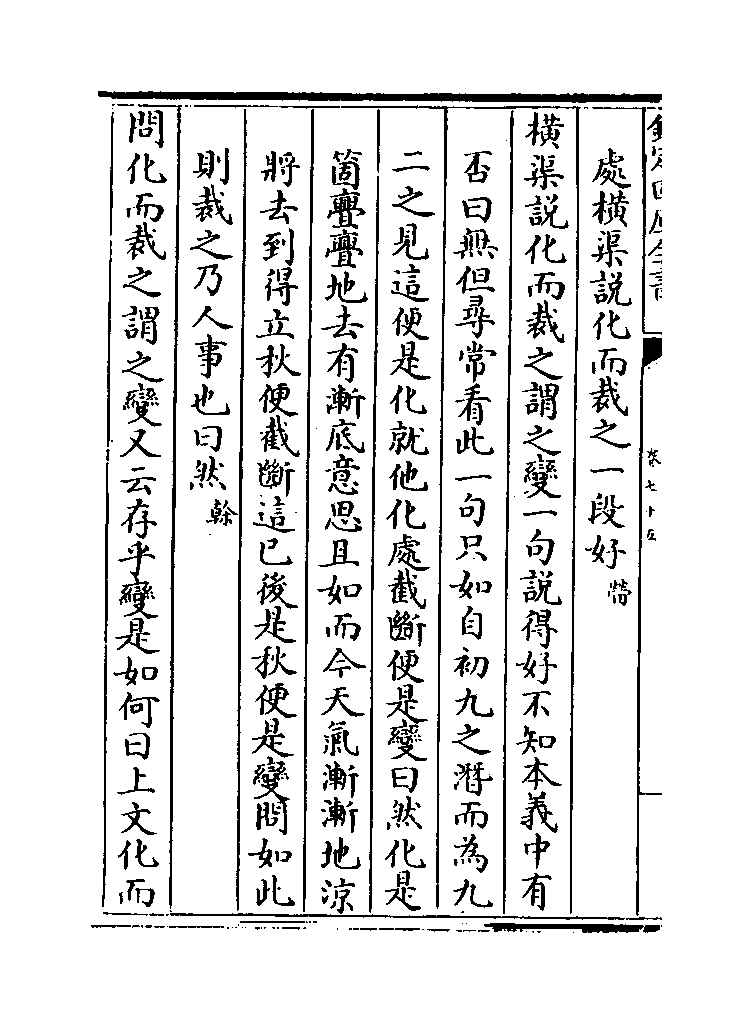 欽定四庫全書
卷七十五
處橫渠説化而裁之一段好㽦
橫渠説化而裁之謂之變一句説得好不知本義中有
否曰無但尋常看此一句只如自初九之潛而為九
二之見這便是化就他化處截斷便是變曰然化是
箇亹亹地去有漸底意思且如而今天氣漸漸地涼
將去到得立秋便截斷這已後是秋便是變問如此
則裁之乃人事也曰然榦
問化而裁之謂之變又云存乎變是如何曰上文化而